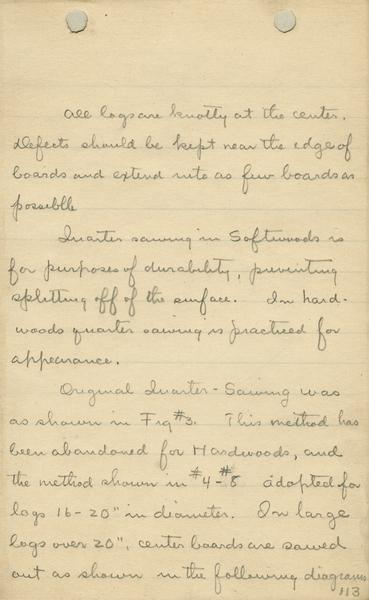 All logs are knotty at the center.
Defects should be kept near the edge of
boards and extend into as few boards as
possiblle
Quarter sawing in Softwoods is
for purposes of durability, preventing
splitting off of the surface. In hard-
woods quarter sawing is practiced for
appearance.
Original Quarter-Sawing was
as shown in Fig #3. This method has
been abandoned for Hardwoods, and
the method shown in #4-#8 adopted for
logs 16-20" in diameter. On large
logs over 20", center boards are sawed
out as shown in the following diagrams
113